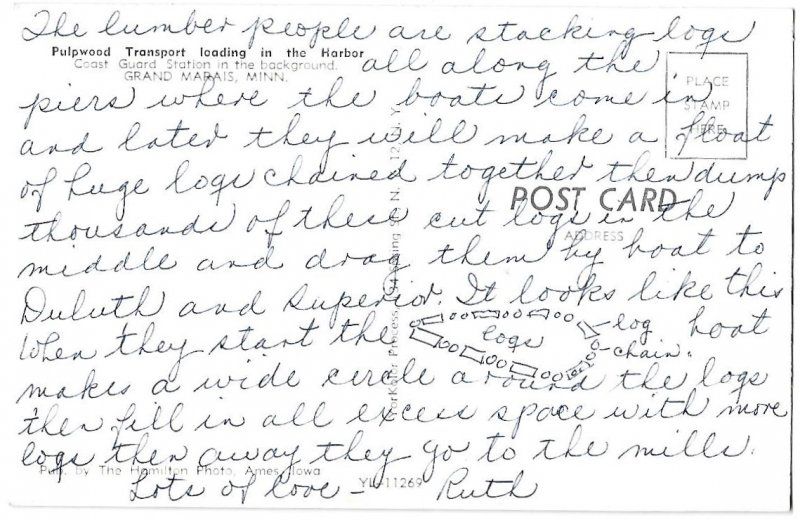 The lumber people are stacking logs
Pulpwood Transport loading in the Harbor
Coast Guard Station in the background.
GRAND MARAIS, MINN.
all along the
PLACE
STAMP
HERE
piers where the boats come in
and later they will make a float
of huge logs chained together then dump
POST CARD
thousands of these cut logs in the
ADDRESS
middle and drag them by boat to
Duluth and Superior. It looks like this
When they start the logs log boat
chain.
makes a wide circle around the logs
then fill in all excess space with more
logs then away they go to the mills.
Pub. by The Hamilton Photo, Ames, Iowa
YL-11269
Lots of love - Ruth